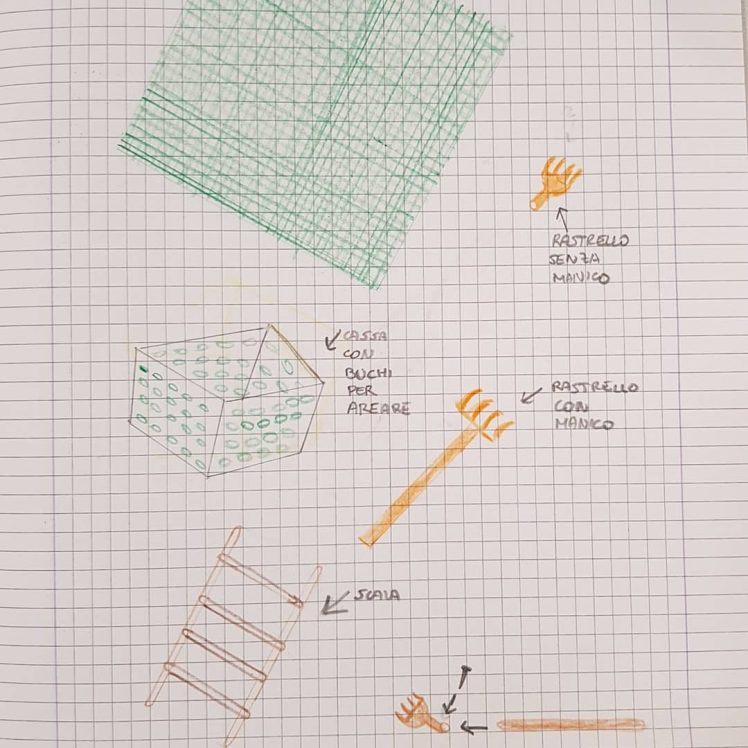 RASTRELLO
SENZA
MANICO
CASSA
CON
BUCHI
PER
AREARE
RASTRELLO
CON
MANICO
SCALA